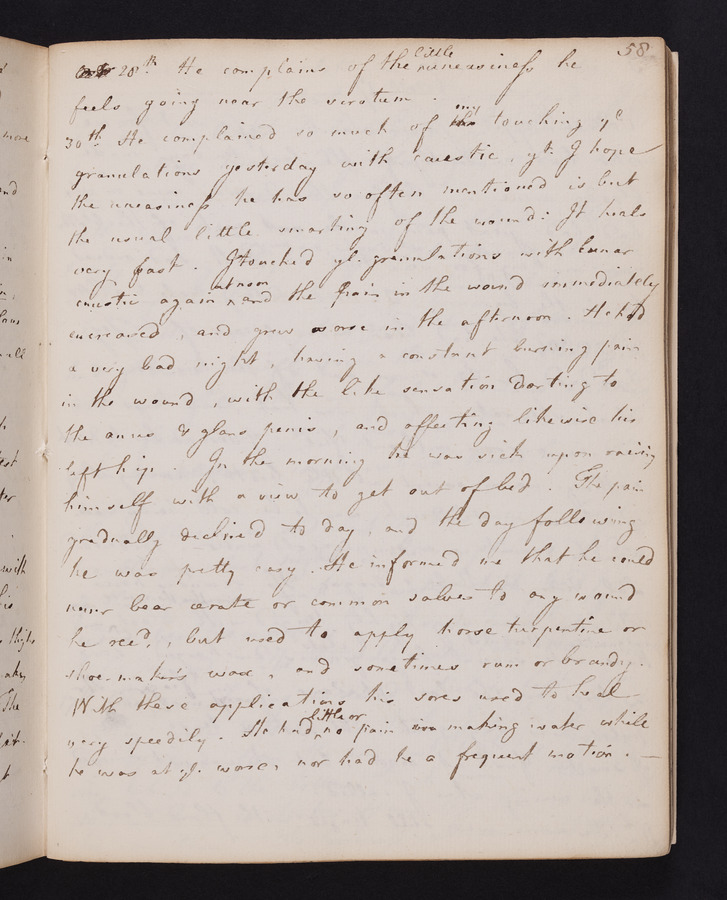 58
28th. He complains of the little uneasiness he
feels going near the scrotum.
30th He complained so much of my touching ye
granulations yesterday with caustic, yt. I hope
the uneasiness he has so often mentioned is but
the usual little smarting of the wound: It heals
very fast. I touched ye. granulations with lunar
caustic again at noon and the pain in the wound immediately
encreased, and grew worse in the afternoon. He had
a very bad night, having a constant burning pain
in the wound, with the like sensation darting to
the anus & glans penis, and affecting likewise his
left hip. In the morning he was sick upon raising
himself with a view to get out of bed. The pain
gradually declined to day, and the day following
he was pretty easy. He informed me that he could
never bear cerate or common salves to any wound
he recd., but used to apply horse turpentine or
shoe-maker's wax, and sometimes rum or brandy.
With these applications his sores used to heal
very speedily. He had little or no pain in making water while
he was at ye. worse, nor had he a frequent motion. —